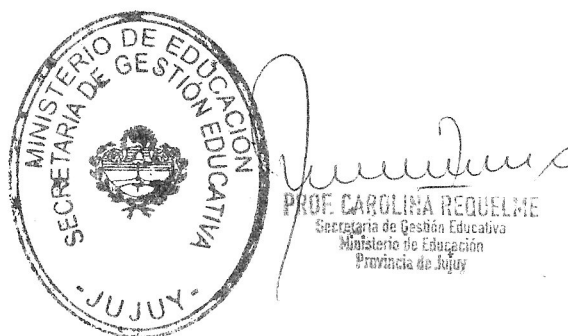 MINISTERIO DE EDUCACIÓN
SECRETARIA DE GESTIÓN EDUCATIVA
- JUJUY -
PROF. CAROLINA REQUELME
Secretaria de Gestión Educativa
Ministerio de Educación
Provincia de Jujuy